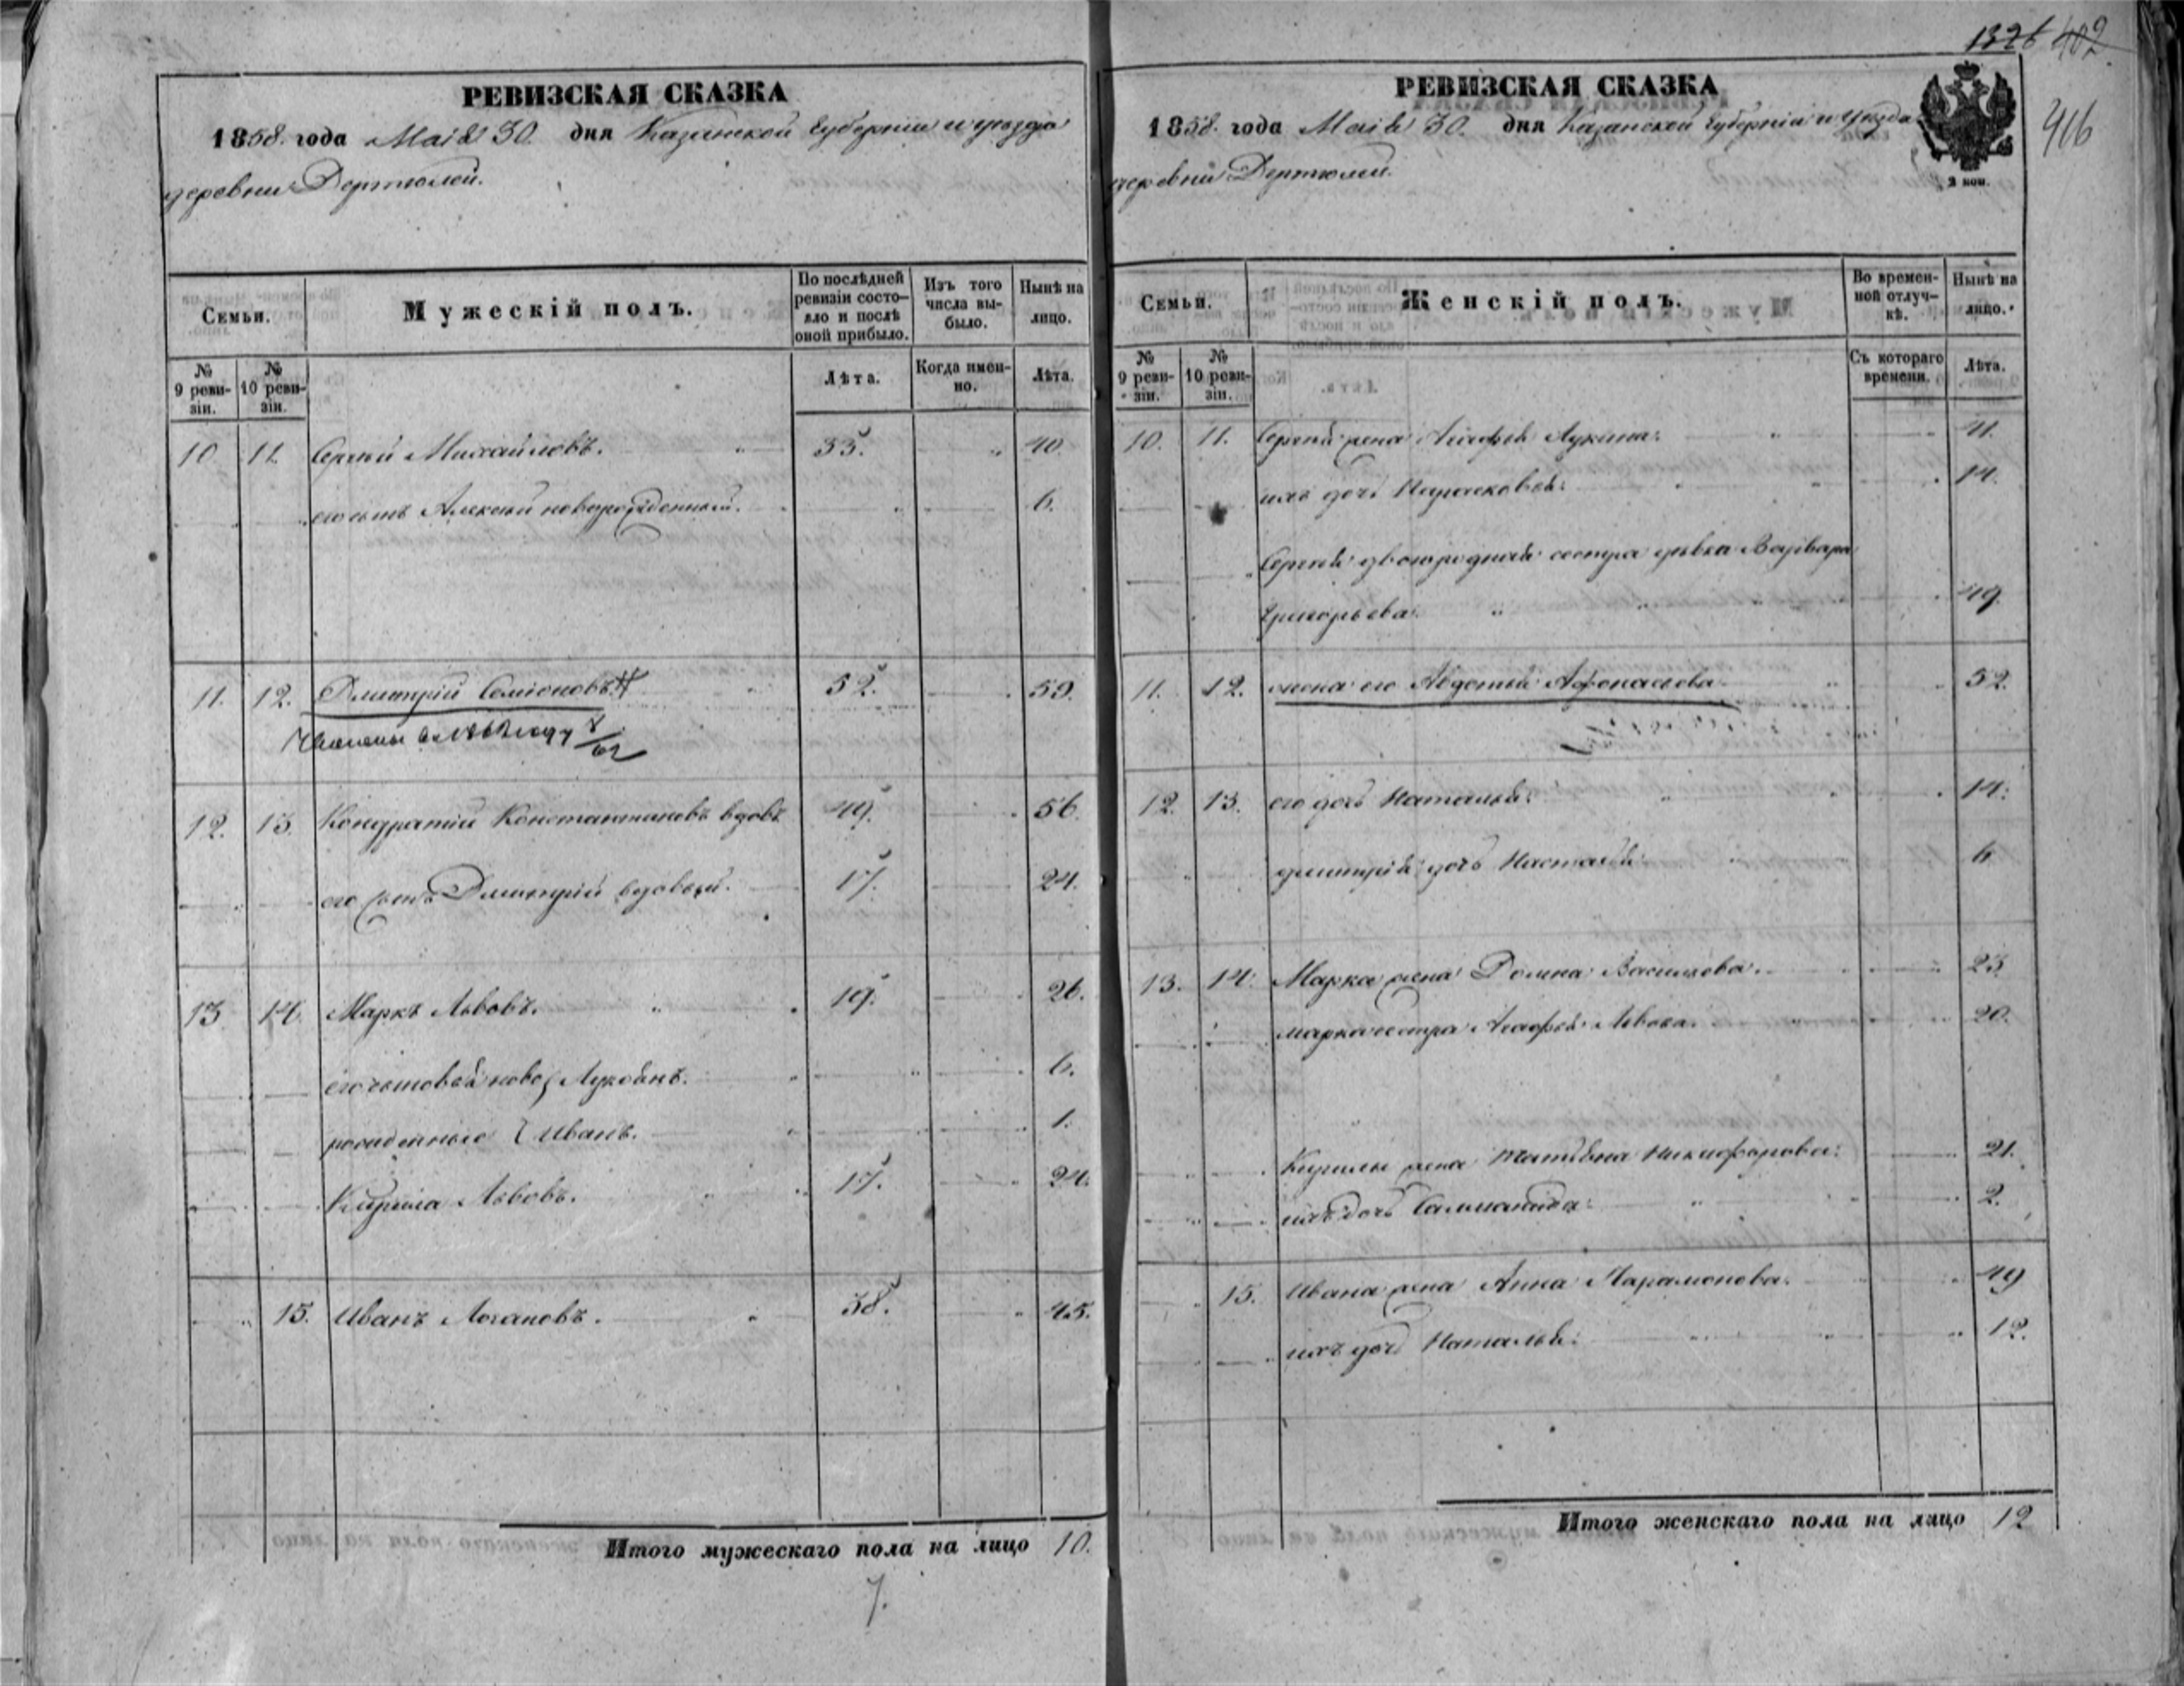 1326 402
416
РЕВИЗСКАЯ СКАЗКА
1858. года Маія 30. дня Казанской Губерніи и уезда
деревни Дертюлей.
Семьи.
Мужескій полъ.
По послѣдней ревизіи состо-
яло и послѣ
оной прибыло.
Изъ того
числа вы-
было.
Нынѣ на
лицо.
№
9 реви-
зіи.
№
10 реви-
зіи.
Лѣта.
Когда имен-
но.
Лѣта.
10 11. Сергей Михайловъ. 33. 40
его сынъ Алексей новорожденный. 6.
11. 12. Дмитрій Семіоновъ 52. 59.
в 1862 году
12. 13. Кондратій Константиновъ вдовъ 49. 56.
его сынъ Дмитрій вдовый. 17. 24.
13 14. Маркъ Львовъ. 19. 26.
его сыновья ново Лукоянъ. 6.
рожденные Иванъ. 1.
Кирила Львовъ. 17. 24.
15. Иванъ Логановъ. 38. 45.
Итого мужескаго пола на лицо 10.
7.
РЕВИЗСКАЯ СКАЗКА
1858. года Маія 30. дня Казанской Губерніи и Уезда
деревни Дертюлей.
2 коп.
Семьи.
Женскій полъ.
Во времен-
ной отлуч-
кѣ.
Нынѣ на
лицо.
№
9 реви-
зіи.
№
10 реви-
зіи.
Съ котораго
времени.
Лѣта.
10. 11. Сергея жена Агафья Лукина. 41.
ихъ дочь Парасковья. 14.
Сергея двоюродная сестра девка Варвара
Григорьева. 49.
11. 12. жена его Авдотья Афонасьева 52.
12. 13. его дочь Наталья. 14.
дмитрія дочь Настасья 6
13. 14. Марка жена Домна Васильева. 23
марка сестра Агафья Львова. 20.
Кирилы жена Татьяна Никифорова. 21.
ихъ дочь 2.
15. Ивана жена Анна Парамонова. 49
ихъ дочь Наталья. 12.
Итого женскаго пола на лицо 12